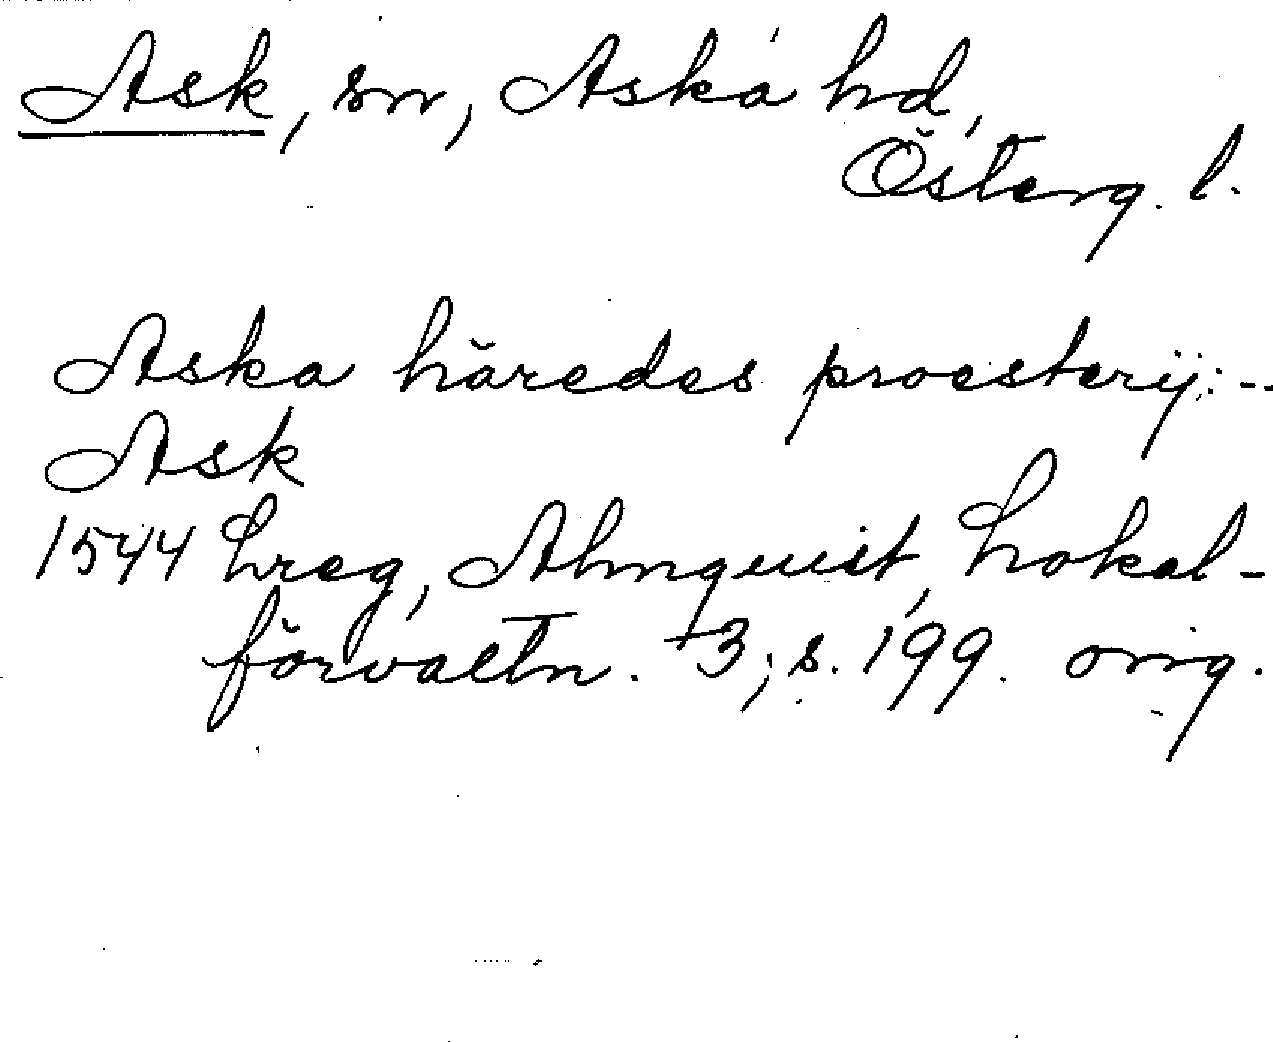 Ask, sn, Aska hd,
Österg. l.
Aska häredes proesterij: --
Ask
1544 Lreg, Almquist, Lokal-
förvaltn. 3, s. 199. orig.